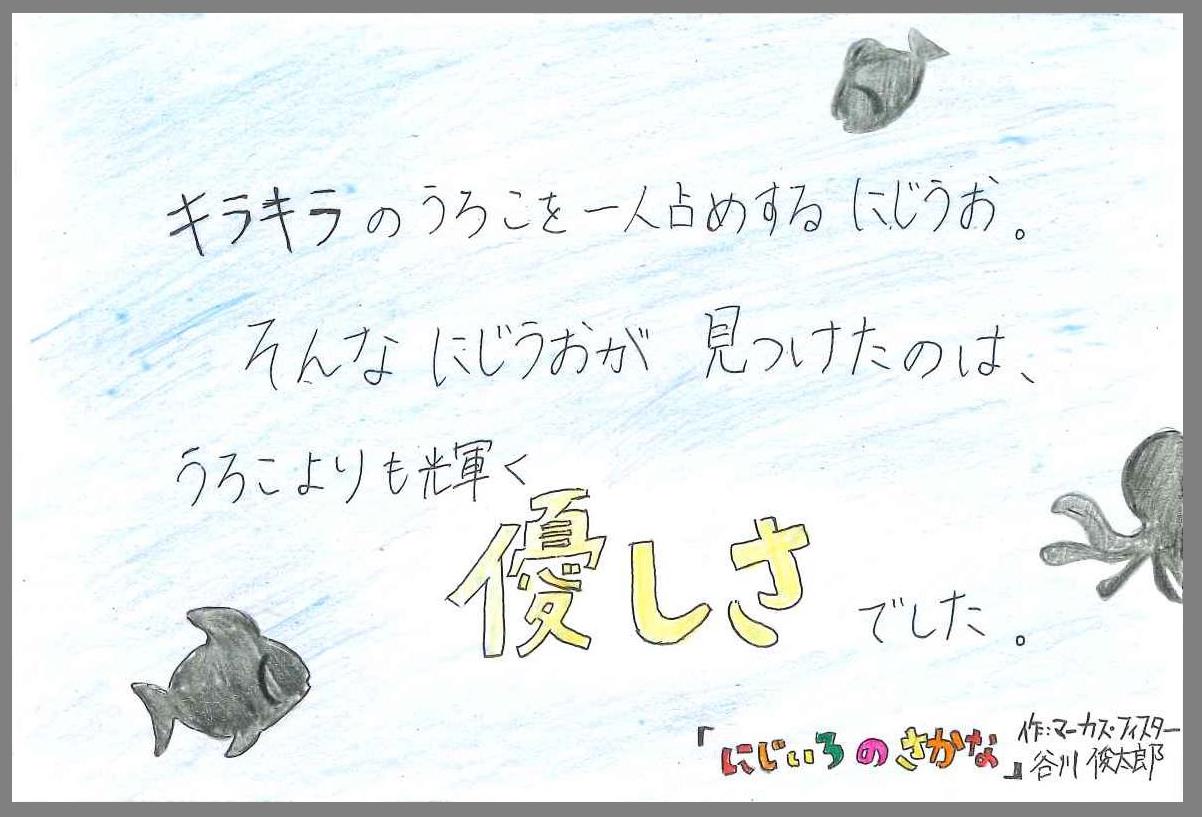 キラキラのうろこを一人占めするにじうお。
そんなにじうおが見つけたのは、
うろこよりも輝く
優しさでした。
『にじいろのさかな』
作:マーカス・フィスター
谷川俊太郎